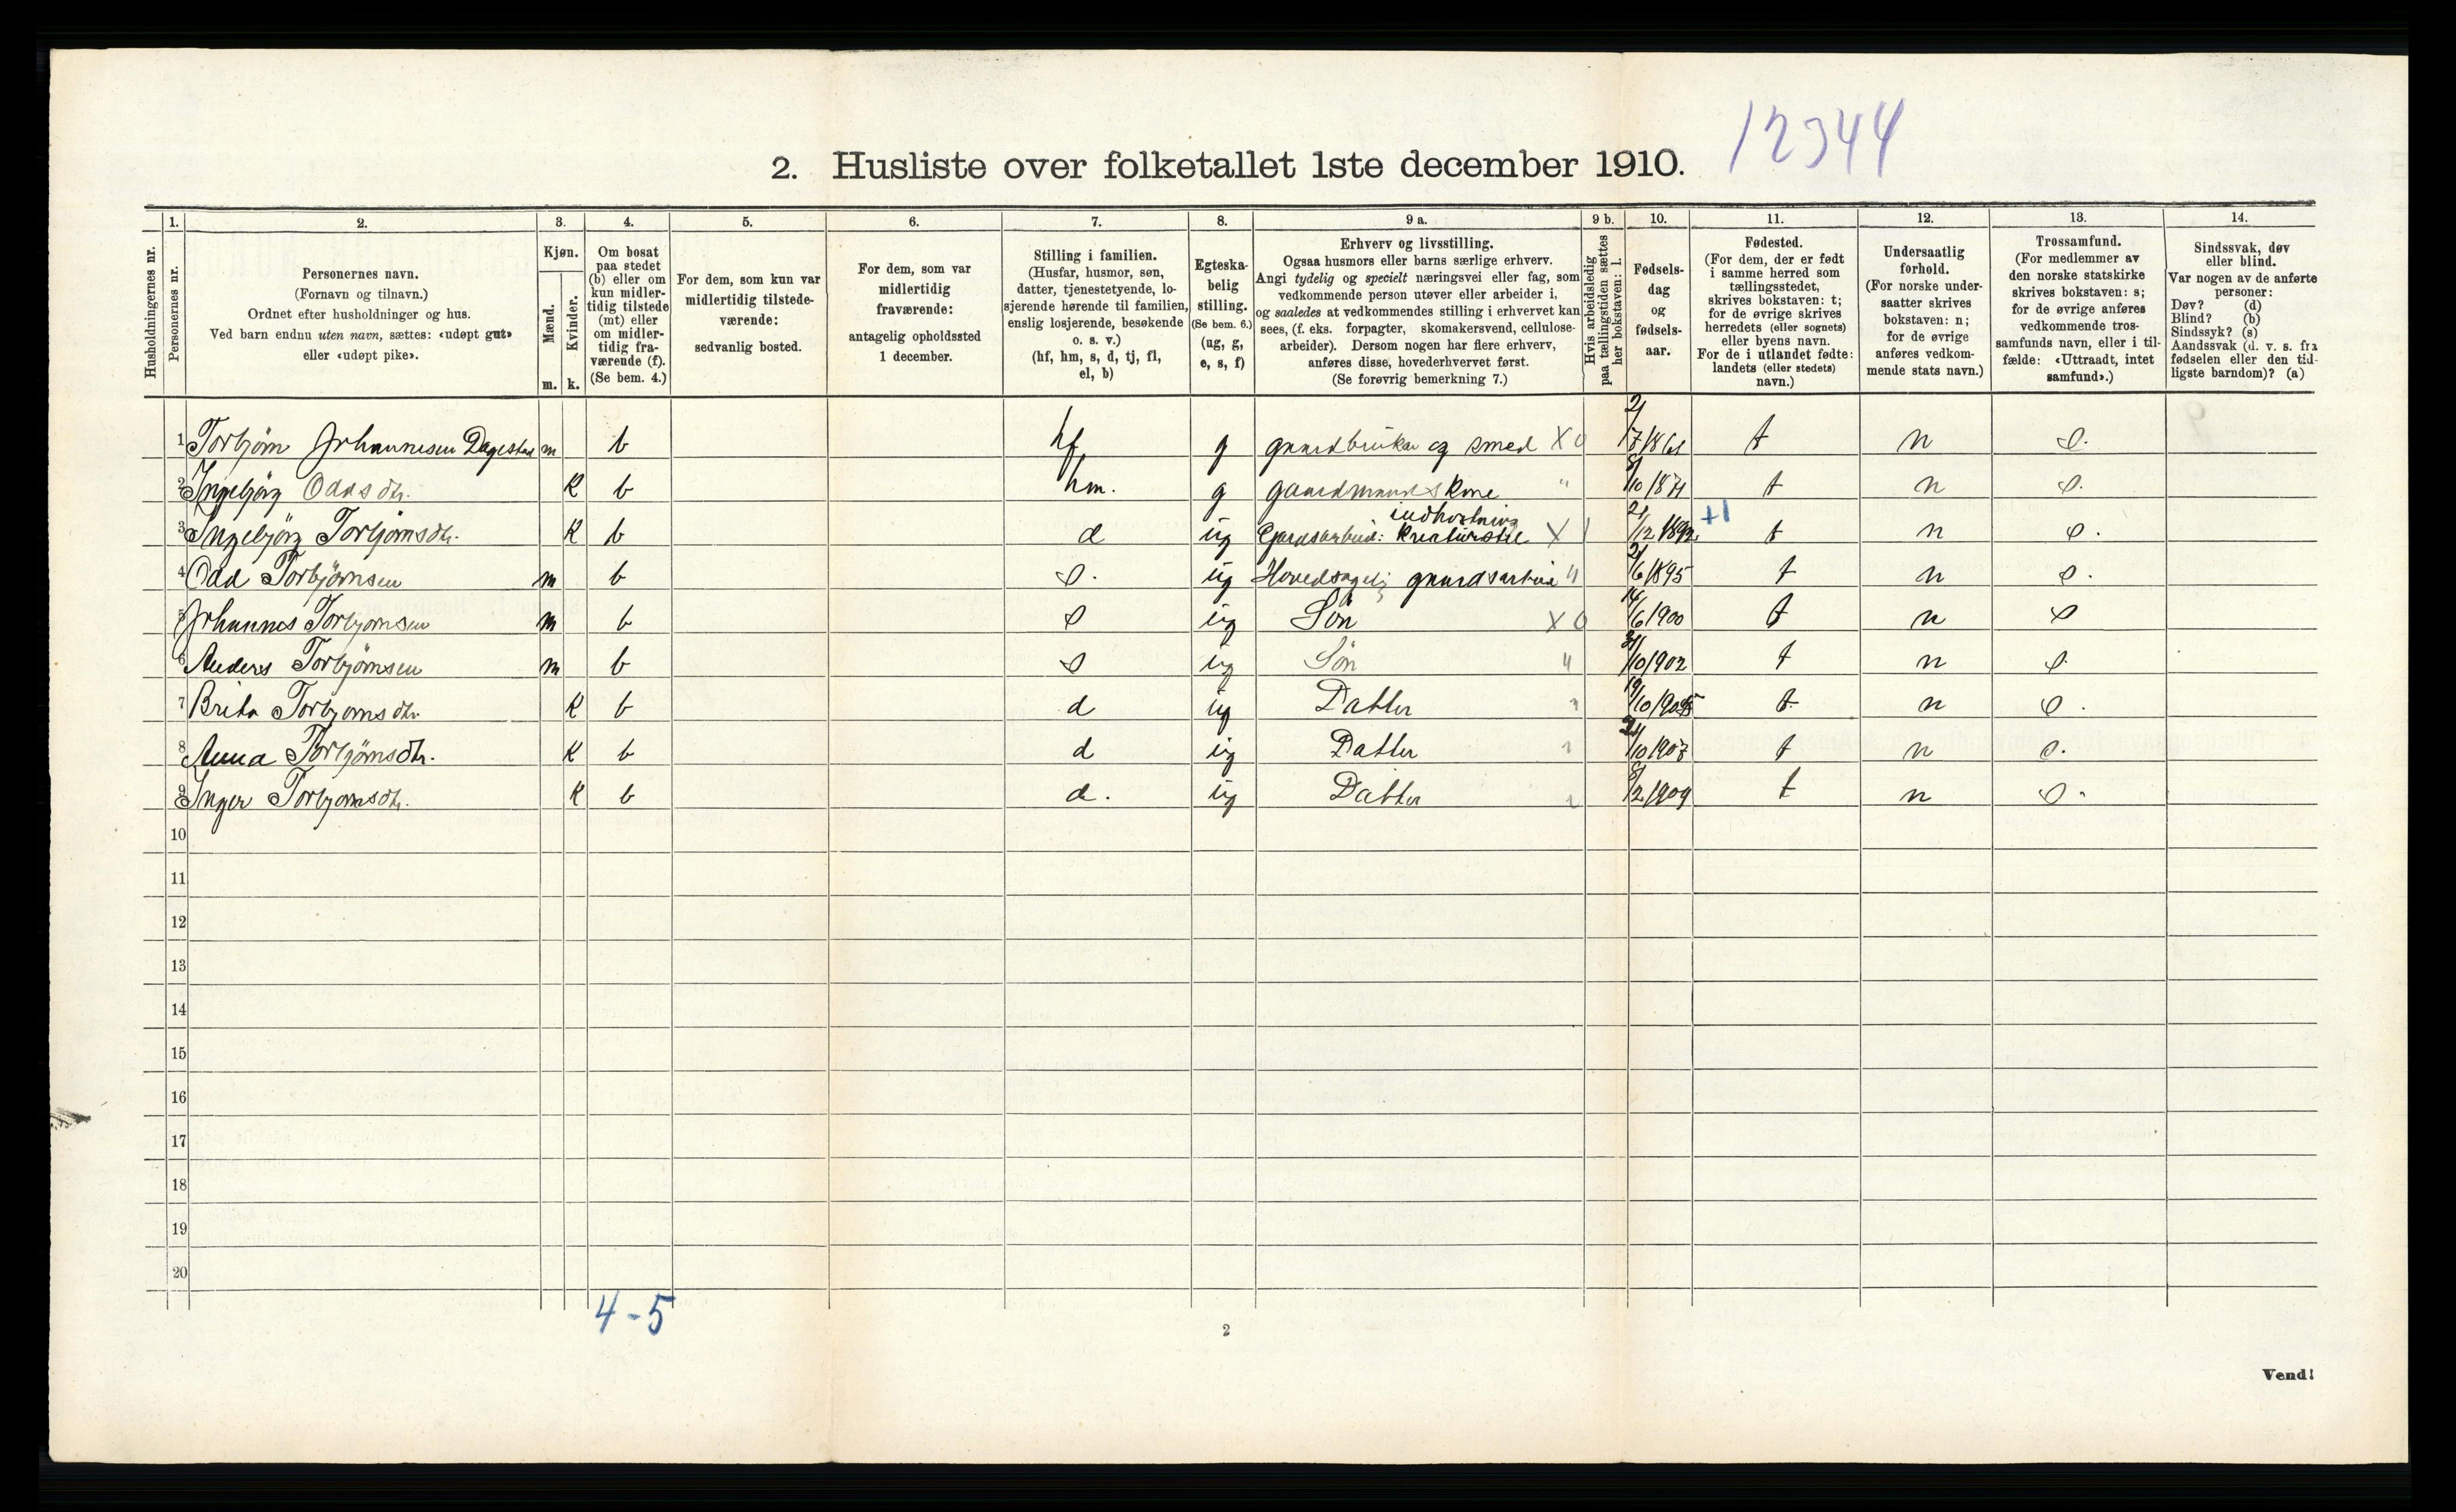 12344
2. Husliste over folketallet 1ste december 1910.
Husholdningernes nr.
1.
Personernes nr.
2.
Personernes navn.
(Fornavn og tilnavn.)
Ordnet efter husholdninger og hus.
Ved barn endnu uten navn, sættes: «udøpt gut»
eller «udøpt pike».
3.
Kjøn.
Mænd.
Kvinder.
m. k.
4.
Om bosat
paa stedet
(b) eller om
kun midler-
tidig tilstede
(mt) eller
om midler-
tidig fra-
værende (f).
(Se bem. 4.)
5.
For dem, som kun var
midlertidig tilstede-
værende:
sedvanlig bosted.
6.
For dem, som var
midlertidig
fraværende:
antagelig opholdssted
1 december.
7.
Stilling i familien.
(Husfar, husmor, søn,
datter, tjenestetyende, lo-
sjerende hørende til familien,
enslig losjerende, besøkende
o. s. v.)
(hf, hm, s, d, tj, fl,
el, b)
8.
Egteska-
belig
stilling.
(Se bem. 6.)
(ug, g,
e, s, f)
9 a.
Erhverv og livsstilling.
Ogsaa husmors eller barns særlige erhverv.
Angi tydelig og specielt næringsvei eller fag, som
vedkommende person utøver eller arbeider i,
og saaledes at vedkommendes stilling i erhvervet kan
sees, (f. eks. forpagter, skomakersvend, cellulose-
arbeider). Dersom nogen har flere erhverv,
anføres disse, hovederhvervet først.
(Se forøvrig bemerkning 7.)
9 b.
Hvis arbeidsledig
paa tællingstiden sættes
her bokstaven: l.
10.
Fødsels-
dag
og
fødsels-
aar.
11.
Fødested.
(For dem, der er født
i samme herred som
tællingsstedet,
skrives bokstaven: t;
for de øvrige skrives
herredets (eller sognets)
eller byens navn.
For de i utlandet fødte:
landets (eller stedets)
navn.)
12.
Undersaatlig
forhold.
(For norske under-
saatter skrives
bokstaven: n;
for de øvrige
anføres vedkom-
mende stats navn.)
13.
Trossamfund.
(For medlemmer av
den norske statskirke
skrives bokstaven: s;
for de øvrige anføres
vedkommende tros-
samfunds navn, eller i til-
fælde: «Uttraadt, intet
samfund».)
14.
Sindssvak, døv
eller blind.
Var nogen av de anførte
personer:
Døv? (d)
Blind? (b)
Sindssyk? (s)
Aandssvak (d. v. s. fra
fødselen eller den tid-
ligste barndom)? (a)
1 Torbjörn Johannesen Dagestad m b hf g gaardbruker og smed X0 t n s.
2 Ingebjörg Odds dtr. K b hm. g gaardmands Kone " 8/10 1871 t n s.
3 Ingebjörg Torbjörnsdtr. K b d ug Gardsarbeid: Kreaturstel indhøstning X 1 21/12 1892 +1 t n s.
4 Odd Torbjörnsen m b s. ug Hovedsagelig gaardsarbeid " 2/6 1895 t n s.
5 Johannes Torbjornsen m b s ug Sön X0 14/6 1900 t n s
6 Anders Torbjörnsen m b s ug Sön " /10 1902 t n s.
7 Brita Torbjorns dtr. K b d ug Datter " 19/10 1905 t n s.
8 Anna Torbjörnsdtr. K b d ug Datter " /10 1907 t n s.
9 Inger Torbjornsdtr. K b d. ug Datter " 8/2 1909 t n s.
10
11
12
13
14
15
16
17
18
19
20
4-5
2
Vend!